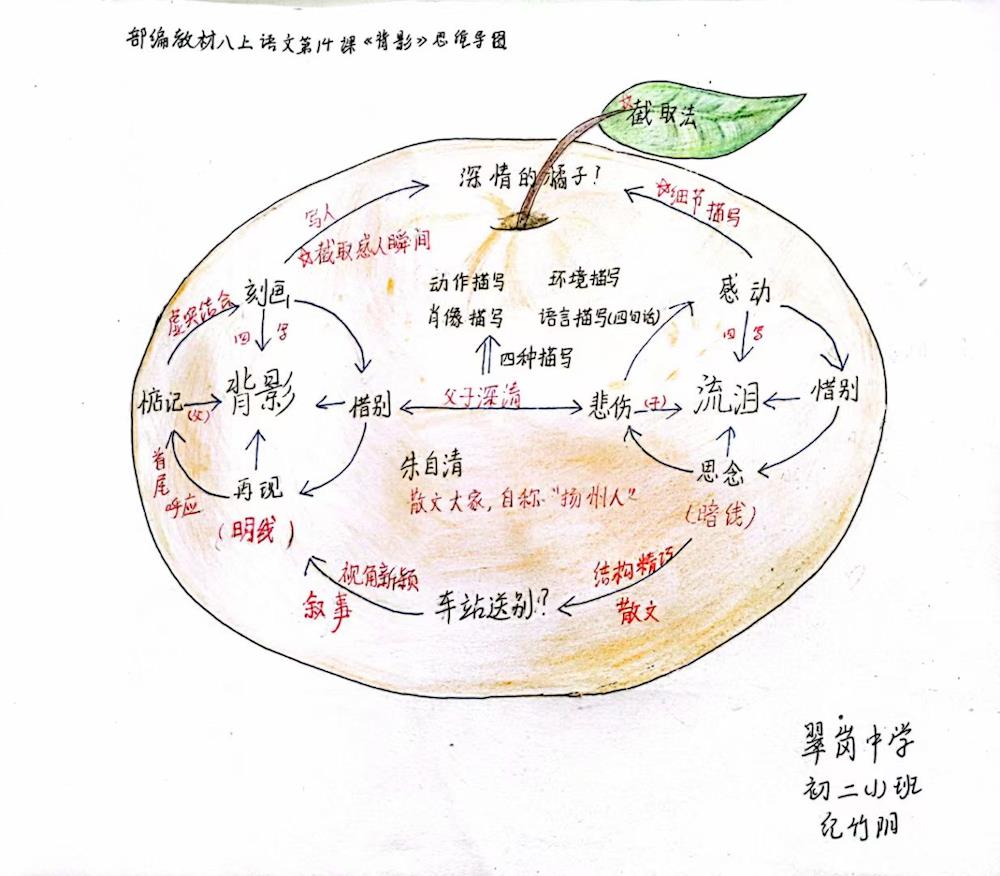 部编教材八上语文第14课《背影》思维导图
☆截取法
深情的橘子！
写人
☆细节描写
☆截取感人瞬间
动作描写
环境描写
肖像描写
语言描写(四句话)
四种描写
刻画
感动
虚实结合
四写
四写
惦记
(父)
背影
惜别
父子深情
悲伤
(子)
流泪
惜别
首尾呼应
再现
(明线)
朱自清
散文大家，自称“扬州人”
思念
(暗线)
视角新颖
叙事
车站送别？
结构精巧
散文
翠岗中学
初二(1)班
纪竹阴